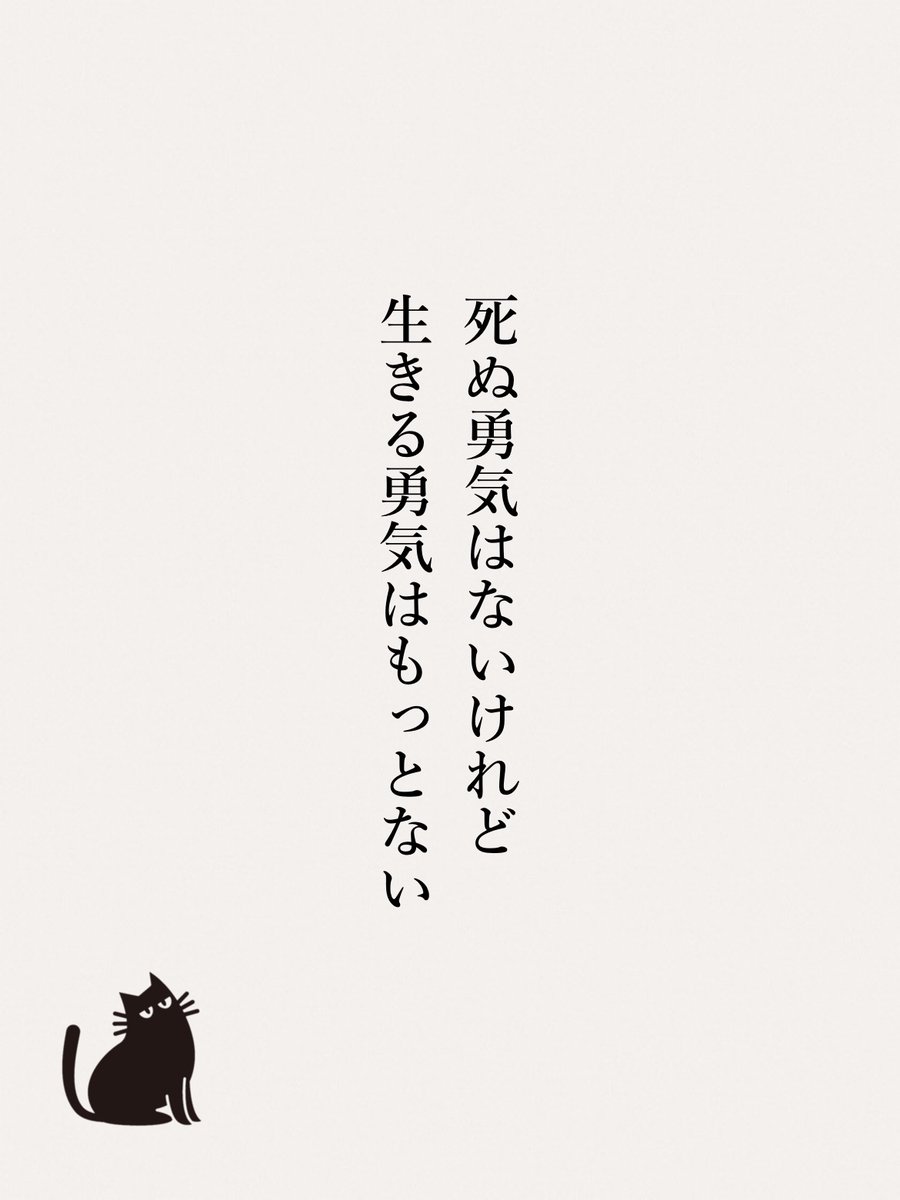 死ぬ勇気はないけれど
生きる勇気はもっとない